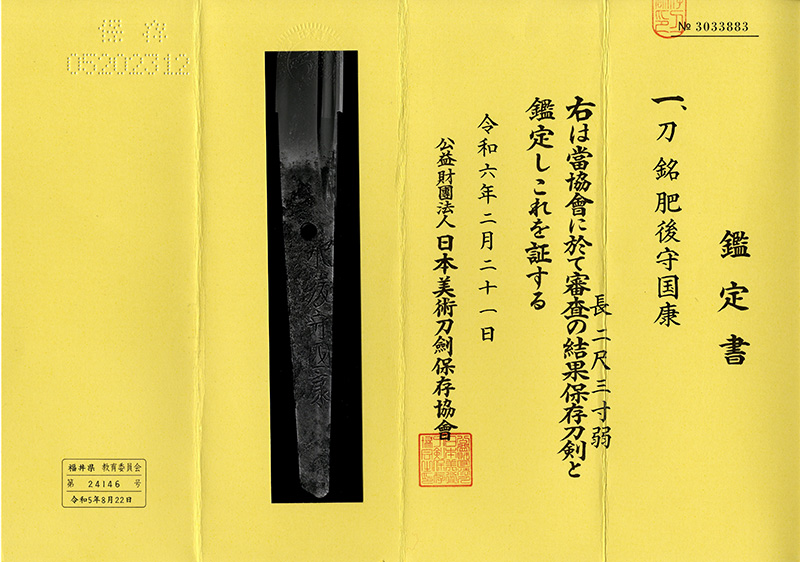 № 3033883
鑑定書
一、刀 銘 肥後守国康
長 二尺三寸弱
右は當協會に於て審査の結果保存刀剣と
鑑定しこれを証する
令和六年二月二十一日
公益財團法人 日本美術刀劍保存協會
肥後守国康
保存
05202312
福井県 教育委員会
第 24146 号
令和5年8月22日